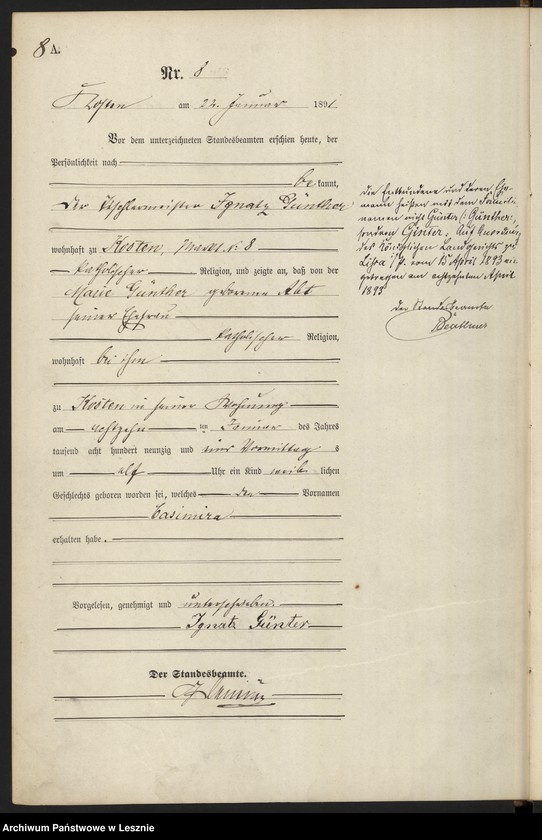 8 A.
Nr. 8
Kosten am 22. Januar 1891
Vor dem unterzeichneten Standesbeamten erschien heute, der
Persönlichkeit nach
be kannt,
der Tischlermeister Ignatz Günther
wohnhaft zu Kosten, Markt N. 8
katholischer Religion, und zeigte an, daß von der
Marie Günther geborene Abt
seiner Ehefrau
katholischer Religion,
wohnhaft bei ihm
zu Kosten in seiner Wohnung
am achtzehn ten Januar des Jahres
tausend acht hundert neunzig und eins Vormittag s
um elf Uhr ein Kind weib lichen
Geschlechts geboren worden sei, welches den Vornamen
Casimira
erhalten habe.
Vorgelesen, genehmigt und unterschrieben.
Ignatz Günter
Der Standesbeamte.
die Entbundene und deren Ehe-
mann heißen mit dem Familien
namen nicht Günter (: Günther:)
sondern Ginter. Auf Anordnung
des Königlichen Landgerichts zu
Lissa i/P. vom 15 April 1893 ein-
getragen am achtzehnten April
1893
Der Standesbeamte
Archiwum Państwowe w Lesznie